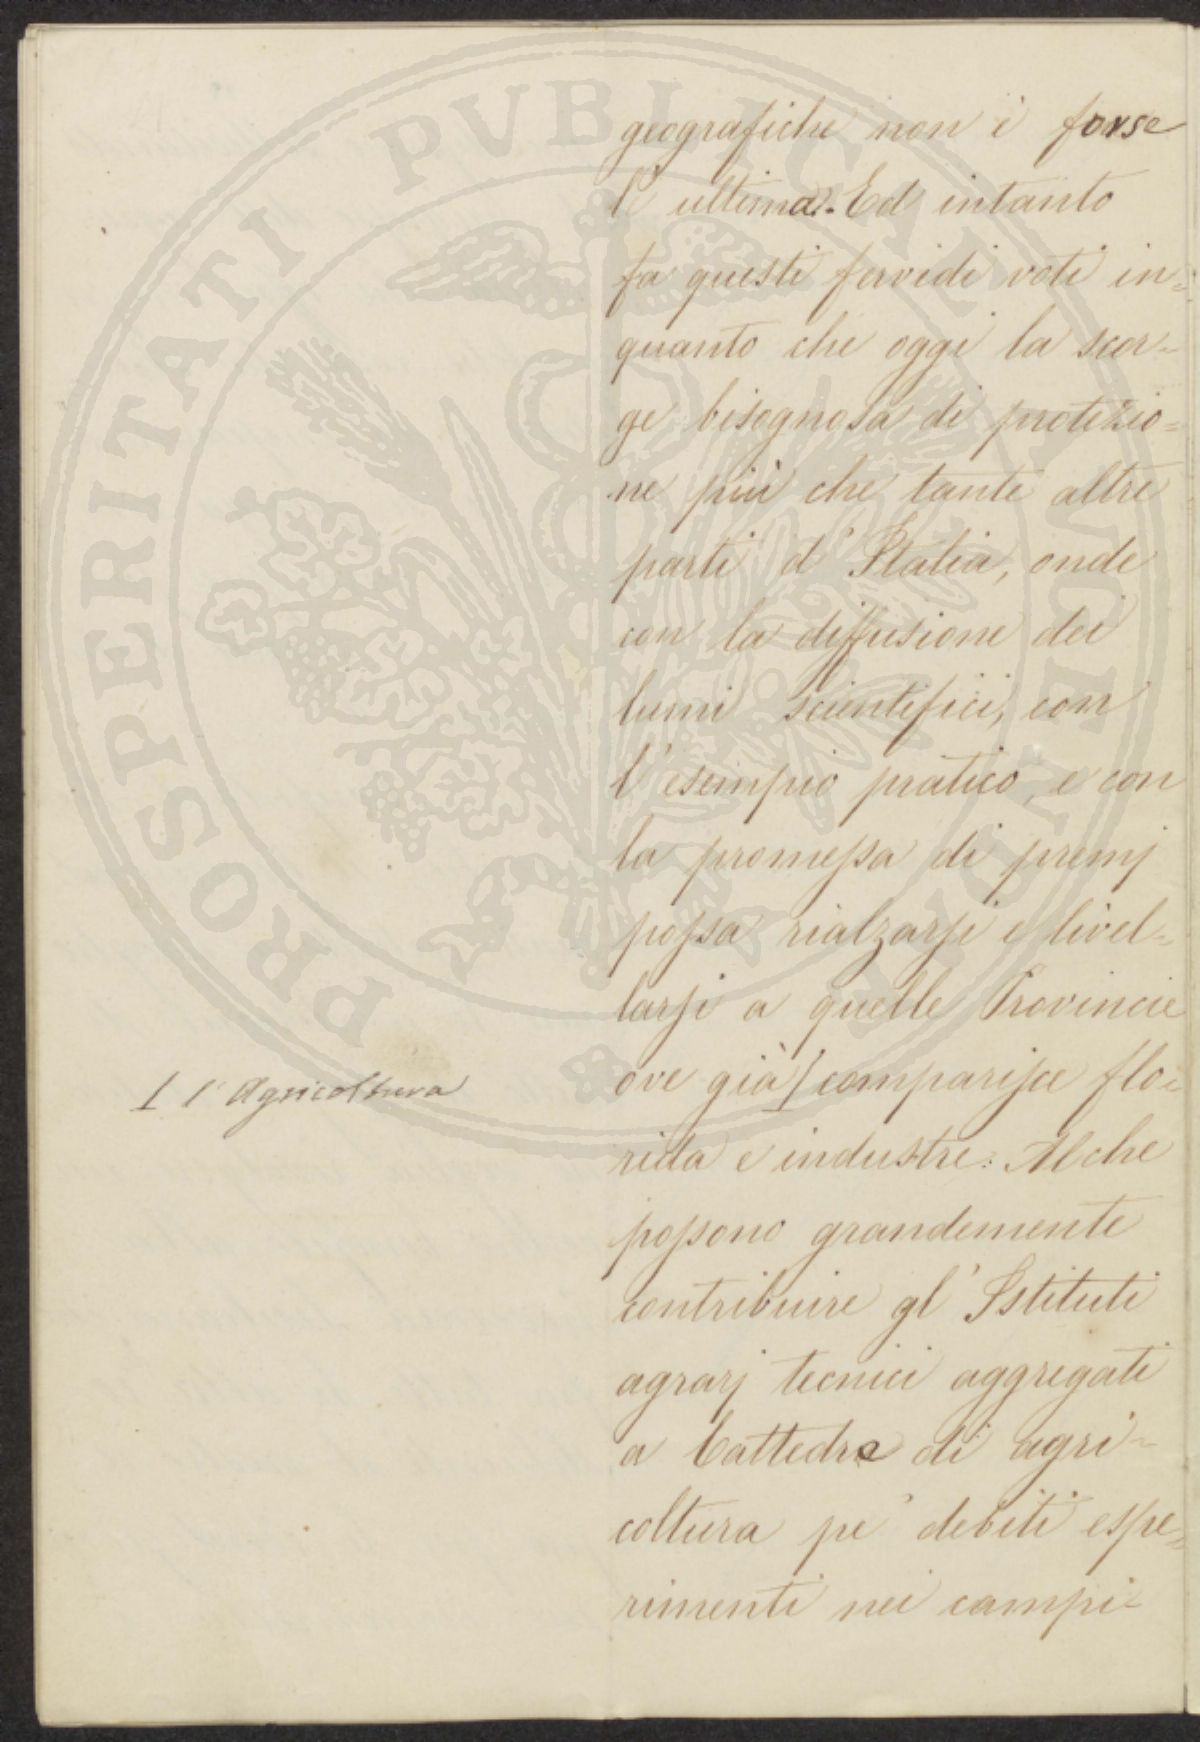 geografiche non è forse
l'ultima. Ed intanto
fa questi fervidi voti in=
quanto che oggi la scor=
ge bisognosa di protezio=
ne più che tante altre
parti d'Italia, onde
con la diffusione dei
lumi scientifici, con
l'esempio pratico, e con
la promessa di premj
possa rialzarsi e livel=
larsi a quelle Provincie
ove già comparisce flo=
l'Agricoltura
rida e industre. Al che
possono grandemente
contribuire gl'Istituti
agrarj tecnici aggregati
a Cattedre di agri=
coltura pe' debiti espe=
rimenti nei campi=
PROSPERITATI PUBLICAE